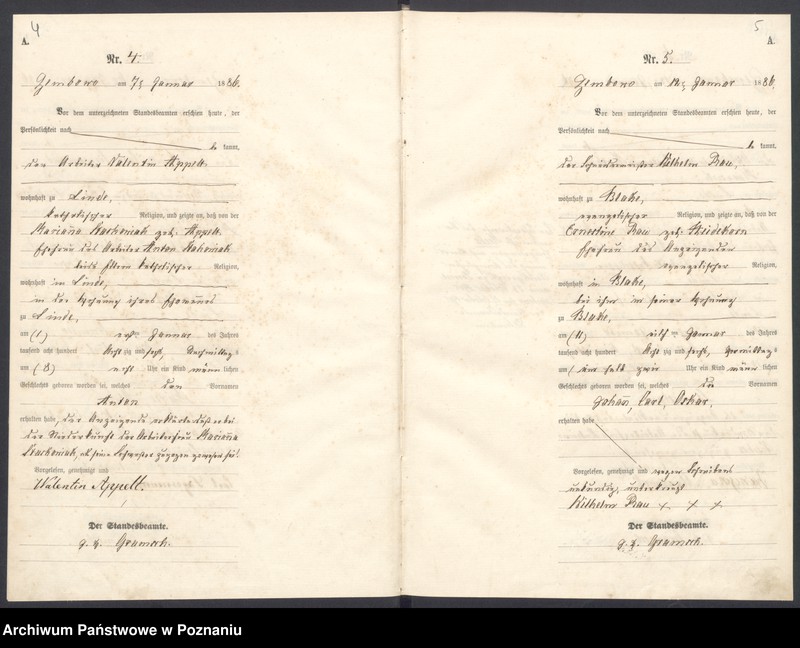 4
A.
Nr. 4.
am 7 Januar 1886.
Vor dem unterzeichneten Standesbeamten erschien heute, der
Persönlichkeit nach
be kannt,
der Arbeiter Valentin Appelt
wohnhaft zu Linde,
katholischer Religion, und zeigte an, daß von der
Mariana geb. Appelt
Ehefrau des Arbeiter Anton
katholischer Religion,
wohnhaft in Linde,
in der Wohnung ihres Ehemannes
zu Linde,
am (1) Januar des Jahres
tausend acht hundert acht zig und sechs, Nachmittags
um (8) acht Uhr ein Kind männ lichen
Geschlechts geboren worden sei, welches den Vornamen
Anton
erhalten habe, der Anzeigende erklärte daß er bei
der Niederkunft der Arbeiterfrau Mariana
zugegen gewesen sei.
Vorgelesen, genehmigt und
Valentin Appelt.
Der Standesbeamte.
5
A.
Nr. 5.
am 12 Januar 1886.
Vor dem unterzeichneten Standesbeamten erschien heute, der
Persönlichkeit nach
be kannt,
der Schneidermeister Wilhelm Rau,
wohnhaft zu Blake,
evangelischer Religion, und zeigte an, daß von der
Ernestine Rau geb.
Ehefrau des Anzeigenden
evangelischer Religion,
wohnhaft in Blake,
bei ihm in seiner Wohnung
zu Blake,
am (11) elf ten Januar des Jahres
tausend acht hundert acht zig und sechs, Vormittags
um halb zwei Uhr ein Kind männ lichen
Geschlechts geboren worden sei, welches die Vornamen
Johann, Carl, Oskar,
erhalten habe
Vorgelesen, genehmigt und wegen Schreibens
unkundig, unterkreuzt
Wilhelm Rau + + +
Der Standesbeamte.
Archiwum Państwowe w Poznaniu